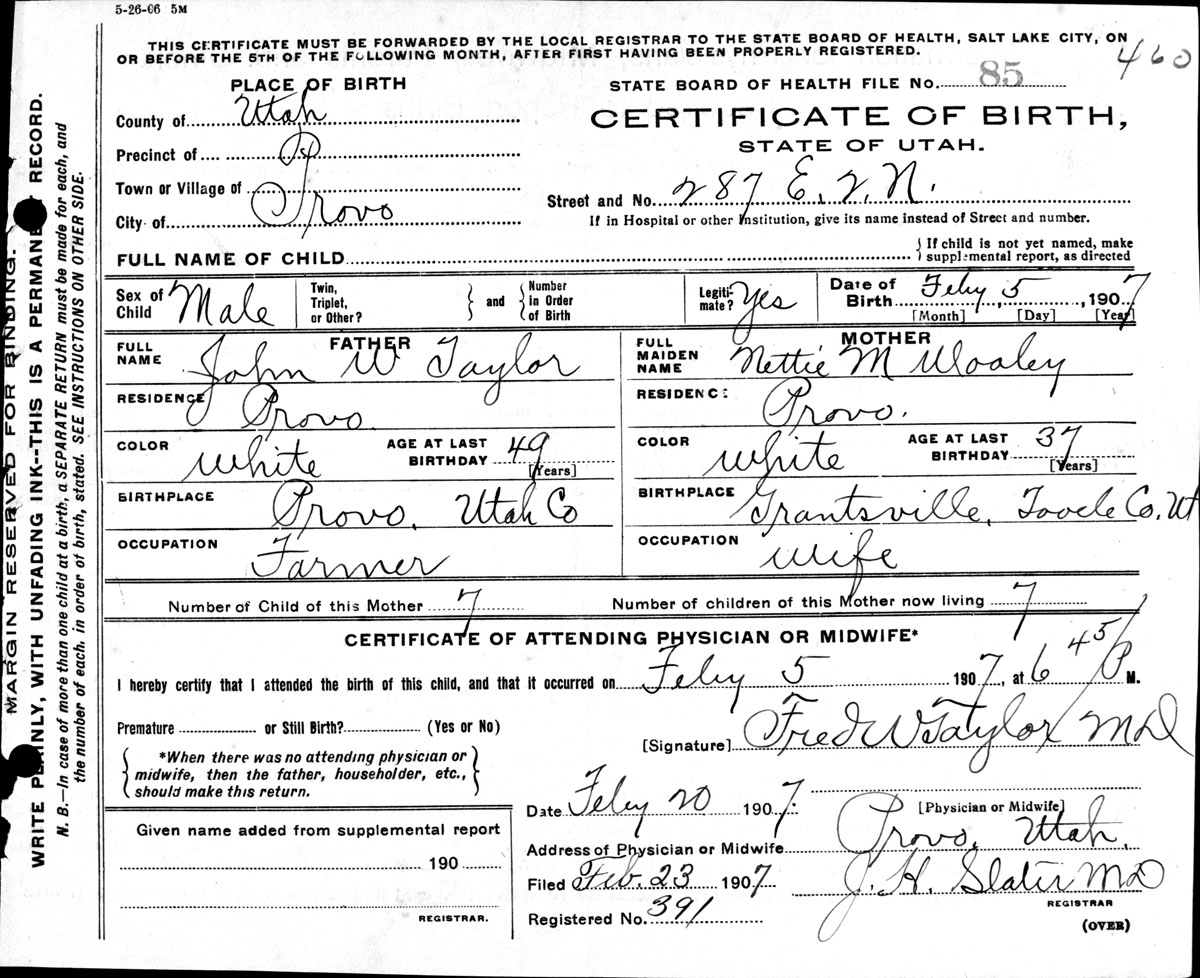 5-26-06 5M
THIS CERTIFICATE MUST BE FORWARDED BY THE LOCAL REGISTRAR TO THE STATE BOARD OF HEALTH, SALT LAKE CITY, ON
OR BEFORE THE 5TH OF THE FOLLOWING MONTH, AFTER FIRST HAVING BEEN PROPERLY REGISTERED.
460
PLACE OF BIRTH
County of Utah
Precinct of
Town or Village of
City of Provo
STATE BOARD OF HEALTH FILE No. 85
CERTIFICATE OF BIRTH,
STATE OF UTAH.
Street and No. 287 E. 2. N.
If in Hospital or other Institution, give its name instead of Street and number.
FULL NAME OF CHILD
If child is not yet named, make
supplemental report, as directed
Sex of Child Male
Twin, Triplet, or Other?
and
Number in Order of Birth
Legiti- mate? Yes
Date of Birth Feby 5, 1907
[Month] [Day] [Year]
FATHER
FULL NAME John W Taylor
RESIDENCE Provo
COLOR White
AGE AT LAST BIRTHDAY 49 [Years]
BIRTHPLACE Provo, Utah Co
OCCUPATION Farmer
MOTHER
FULL MAIDEN NAME Nettie M Wooley
RESIDENCE Provo.
COLOR White
AGE AT LAST BIRTHDAY 37 [Years]
BIRTHPLACE Grantsville, Tooele Co. Ut
OCCUPATION Wife
Number of Child of this Mother 7
Number of children of this Mother now living 7
CERTIFICATE OF ATTENDING PHYSICIAN OR MIDWIFE*
I hereby certify that I attended the birth of this child, and that it occurred on Feby 5 1907, at 6 45/P M.
Premature or Still Birth? (Yes or No)
*When there was no attending physician or
midwife, then the father, householder, etc.,
should make this return.
[Signature] Fred W Taylor MD
[Physician or Midwife]
Date Feby 20 1907.
Address of Physician or Midwife Provo, Utah.
Filed Feb. 23 1907 J. H. Slater MD
REGISTRAR
Registered No. 391
(OVER)
Given name added from supplemental report
190
REGISTRAR.
MARGIN RESERVED FOR BINDING.
WRITE PLAINLY, WITH UNFADING INK--THIS IS A PERMANENT RECORD.
N. B.—In case of more than one child at a birth, a SEPARATE RETURN must be made for each, and
the number of each, in order of birth, stated. SEE INSTRUCTIONS ON OTHER SIDE.